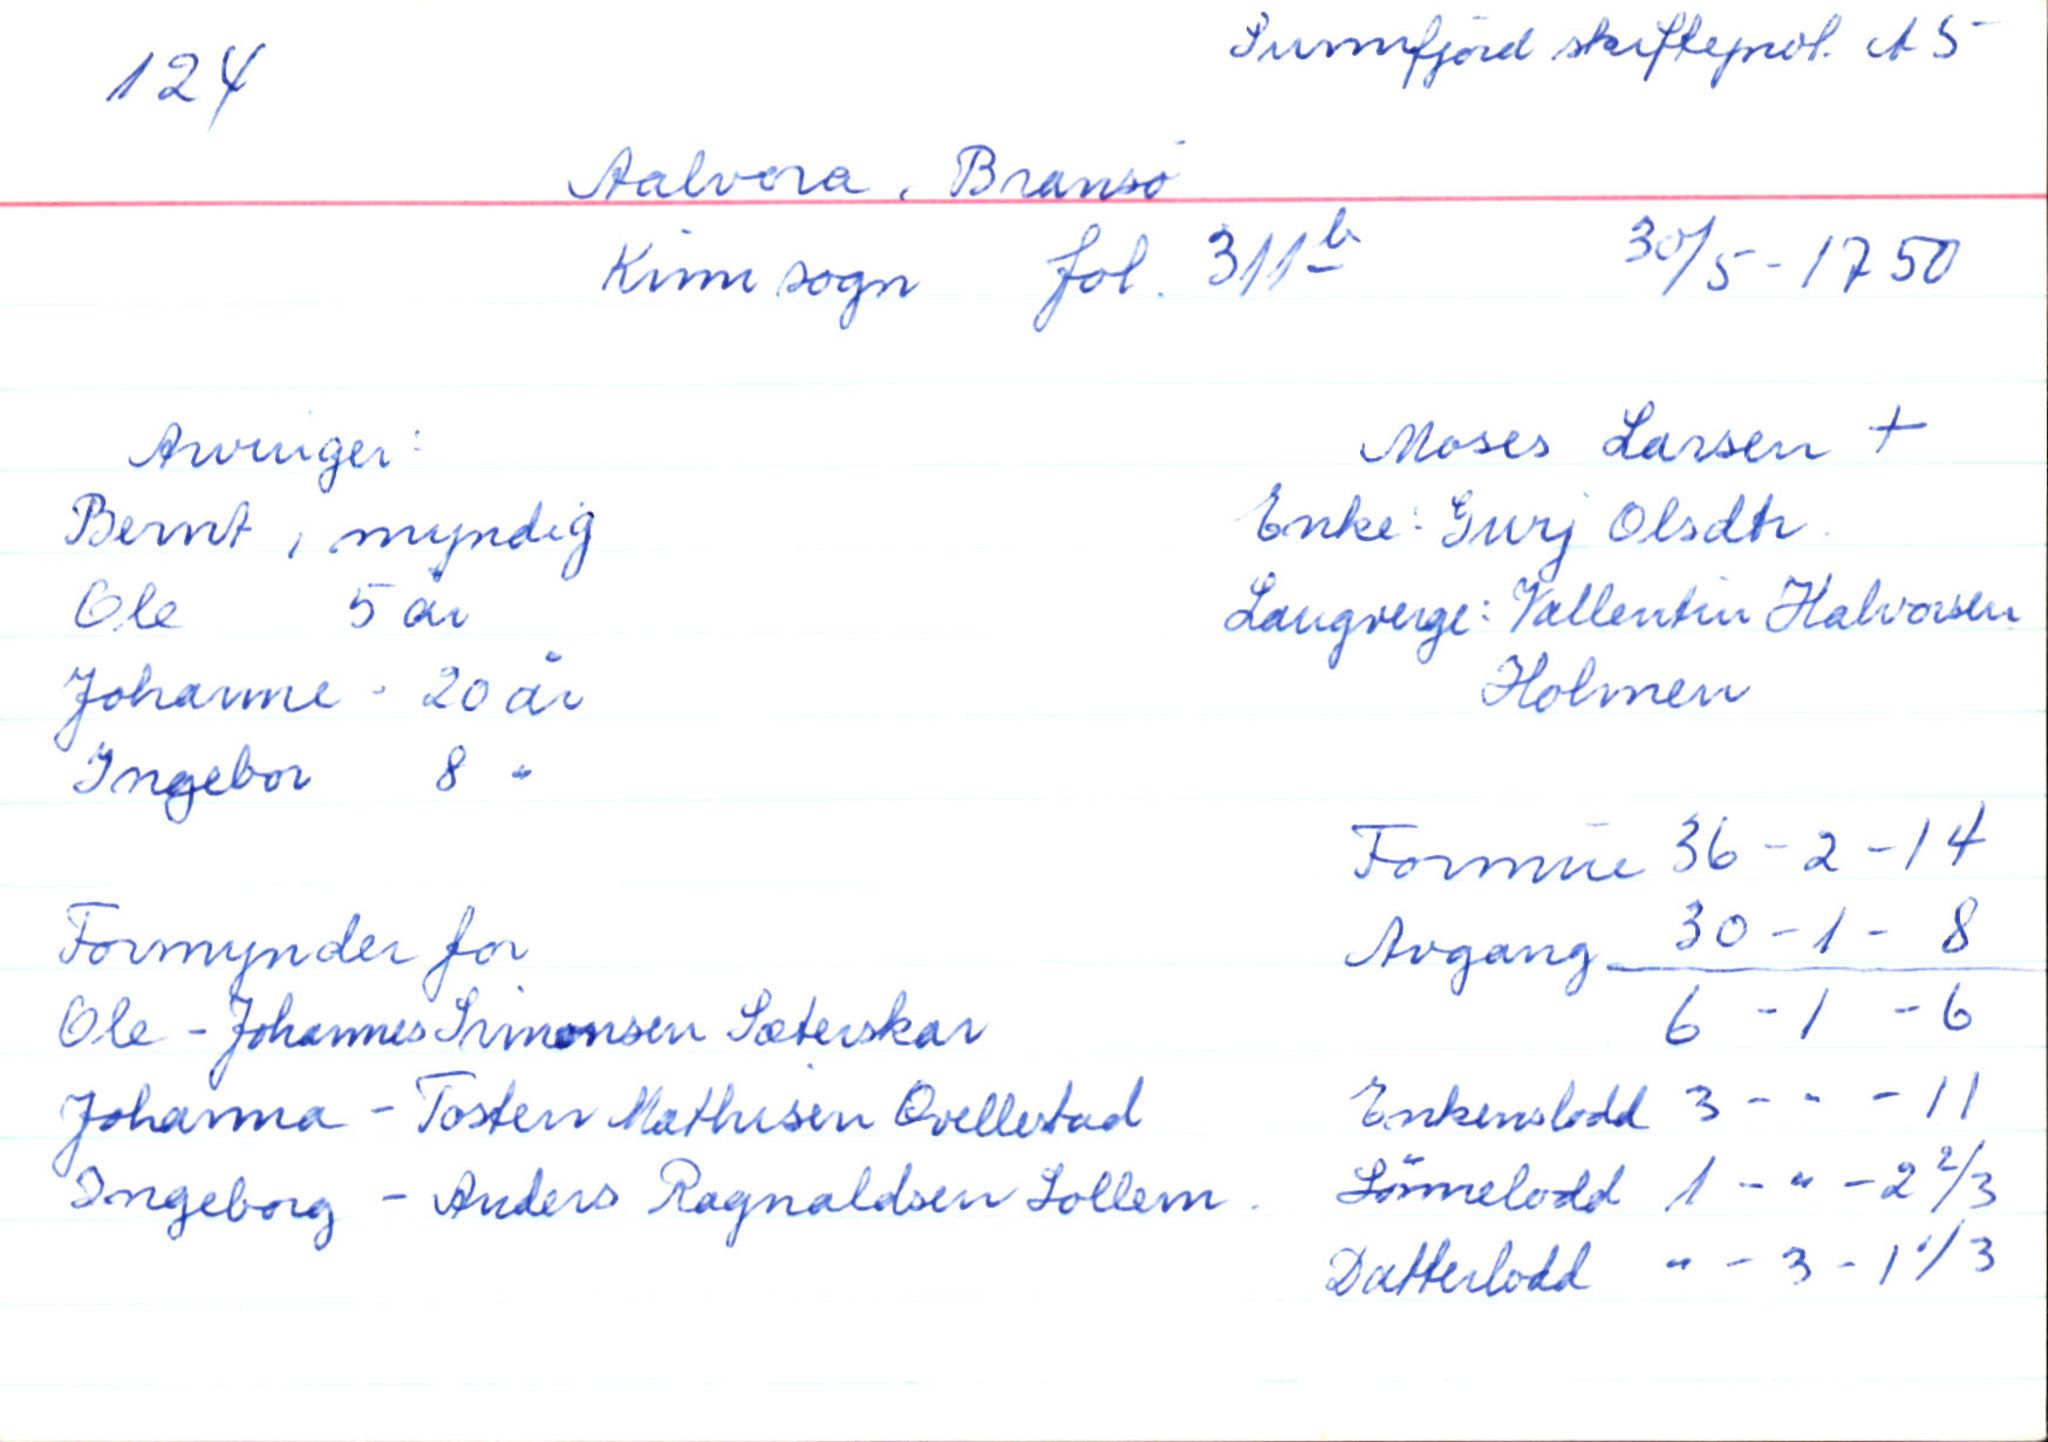 124
Sunnfjörd skifteprot. A 5
Aalvora, Bransö
Kinn sogn fol. 311 b 30/5 - 1750
Arvinger: Moses Larsen +
Bernt, myndig Enke: Gurj Olsdtr.
Ole 5 år Laugverge: Vallentin Halvorsen
Johanne - 20 år Holmen
Ingebor 8 "
Formue 36 - 2 - 14
Formynder for Avgang 30 - 1 - 8
Ole - Johannes Simonsen Sæterskar 6 - 1 - 6
Johanna - Tosten Mathisen Qvellestad Enkenslodd 3 - " - 11
Ingeborg - Anders Ragnaldsen Sollem. Sönnelodd 1 - " - 2 2/3
Datterlodd " - 3 - 1 1/3